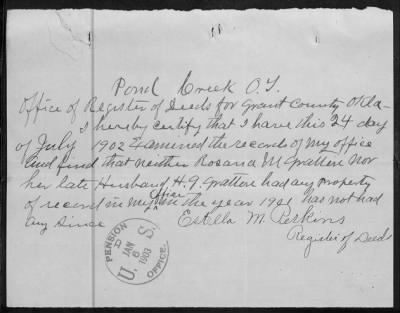 Pond Creek O.T.
Office of Register of Deeds for Grant County Okla-
I hereby certify that I have this 24 day
of July 1902 Examined the records of my office
and find that neither Rosana M Gratten nor
her late Husband H. G. Gratten had any property
Office
of record in my in the year 1901 has not had
any since
Estella M. Perkins
Register of Deeds
PENSION OFFICE
U. S.
JAN
6
1903